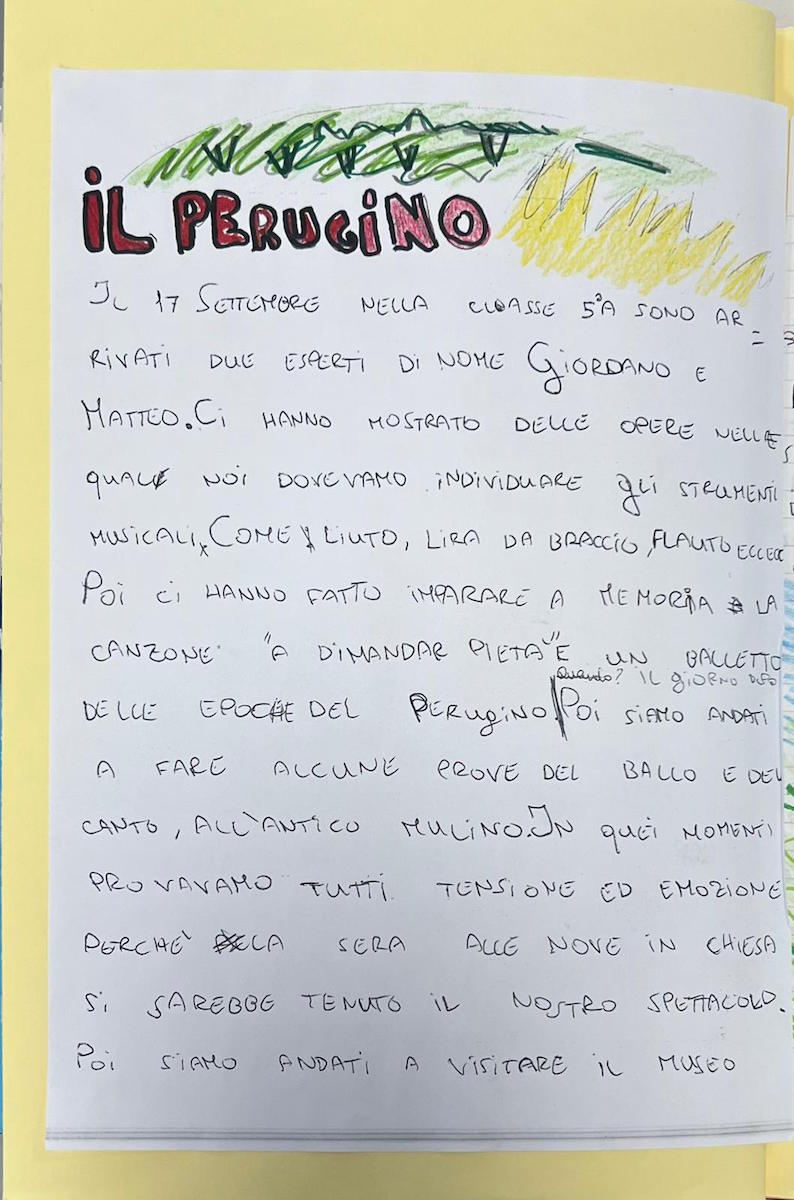 IL PERUGINO
IL 17 SETTEMBRE NELLA CLASSE 5ªA SONO AR
=
RIVATI DUE ESPERTI DI NOME GIORDANO E
MATTEO. CI HANNO MOSTRATO DELLE OPERE NELLE
QUALI NOI DOVEVAMO INDIVIDUARE gli STRUMENTI
MUSICALI, COME LIUTO, LIRA DA BRACCIO, FLAUTO ECCECC
POI CI HANNO FATTO IMPARARE A MEMORIA LA
CANZONE "A DIMANDAR PIETA'" E UN BALLETTO
Quando? IL GIORNO DOPO
DELLE EPOCHE DEL PERUGINO. POI SIAMO ANDATI
A FARE ALCUNE PROVE DEL BALLO E DEL
CANTO, ALL'ANTICO MULINO. IN QUEI MOMENTI
PROVAVAMO TUTTI TENSIONE ED EMOZIONE
PERCHE' LA SERA ALLE NOVE IN CHIESA
SI SAREBBE TENUTO IL NOSTRO SPETTACOLO.
POI SIAMO ANDATI A VISITARE IL MUSEO